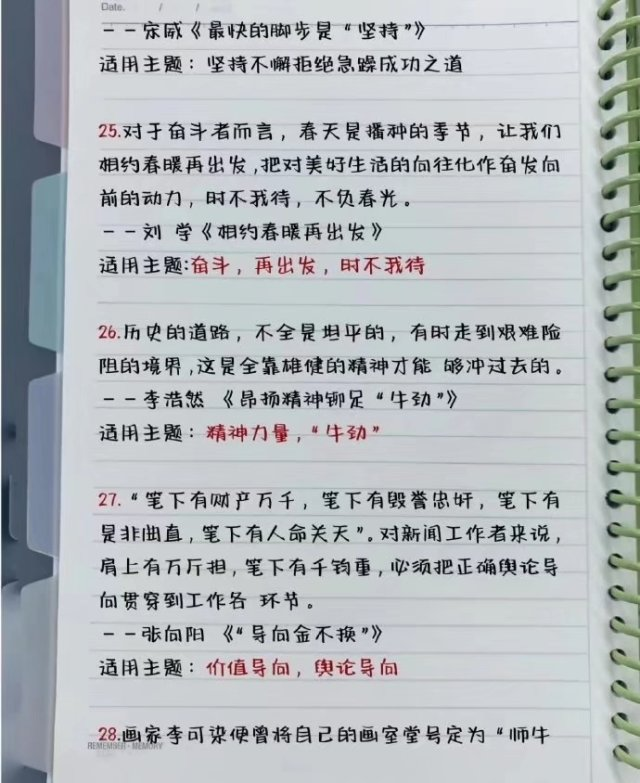 Date. / /
——宋威《最快的脚步是“坚持”》
适用主题：坚持不懈拒绝急躁成功之道
25.对于奋斗者而言，春天是播种的季节，让我们
相约春暖再出发，把对美好生活的向往化作奋发向
前的动力，时不我待，不负春光。
——刘 学《相约春暖再出发》
适用主题:奋斗，再出发，时不我待
26.历史的道路，不全是坦平的，有时走到艰难险
阻的境界，这是全靠雄健的精神才能 够冲过去的。
——李浩然 《昂扬精神铆足“牛劲”》
适用主题：精神力量，“牛劲”
27.“笔下有财产万千，笔下有毁誉忠奸，笔下有
是非曲直，笔下有人命关天”。对新闻工作者来说，
肩上有万斤担，笔下有千钧重，必须把正确舆论导
向贯穿到工作各 环节。
——张向阳 《“导向金不换”》
适用主题：价值导向，舆论导向
28.画家李可染便曾将自己的画室堂号定为“师牛
REMEMBER · MEMORY